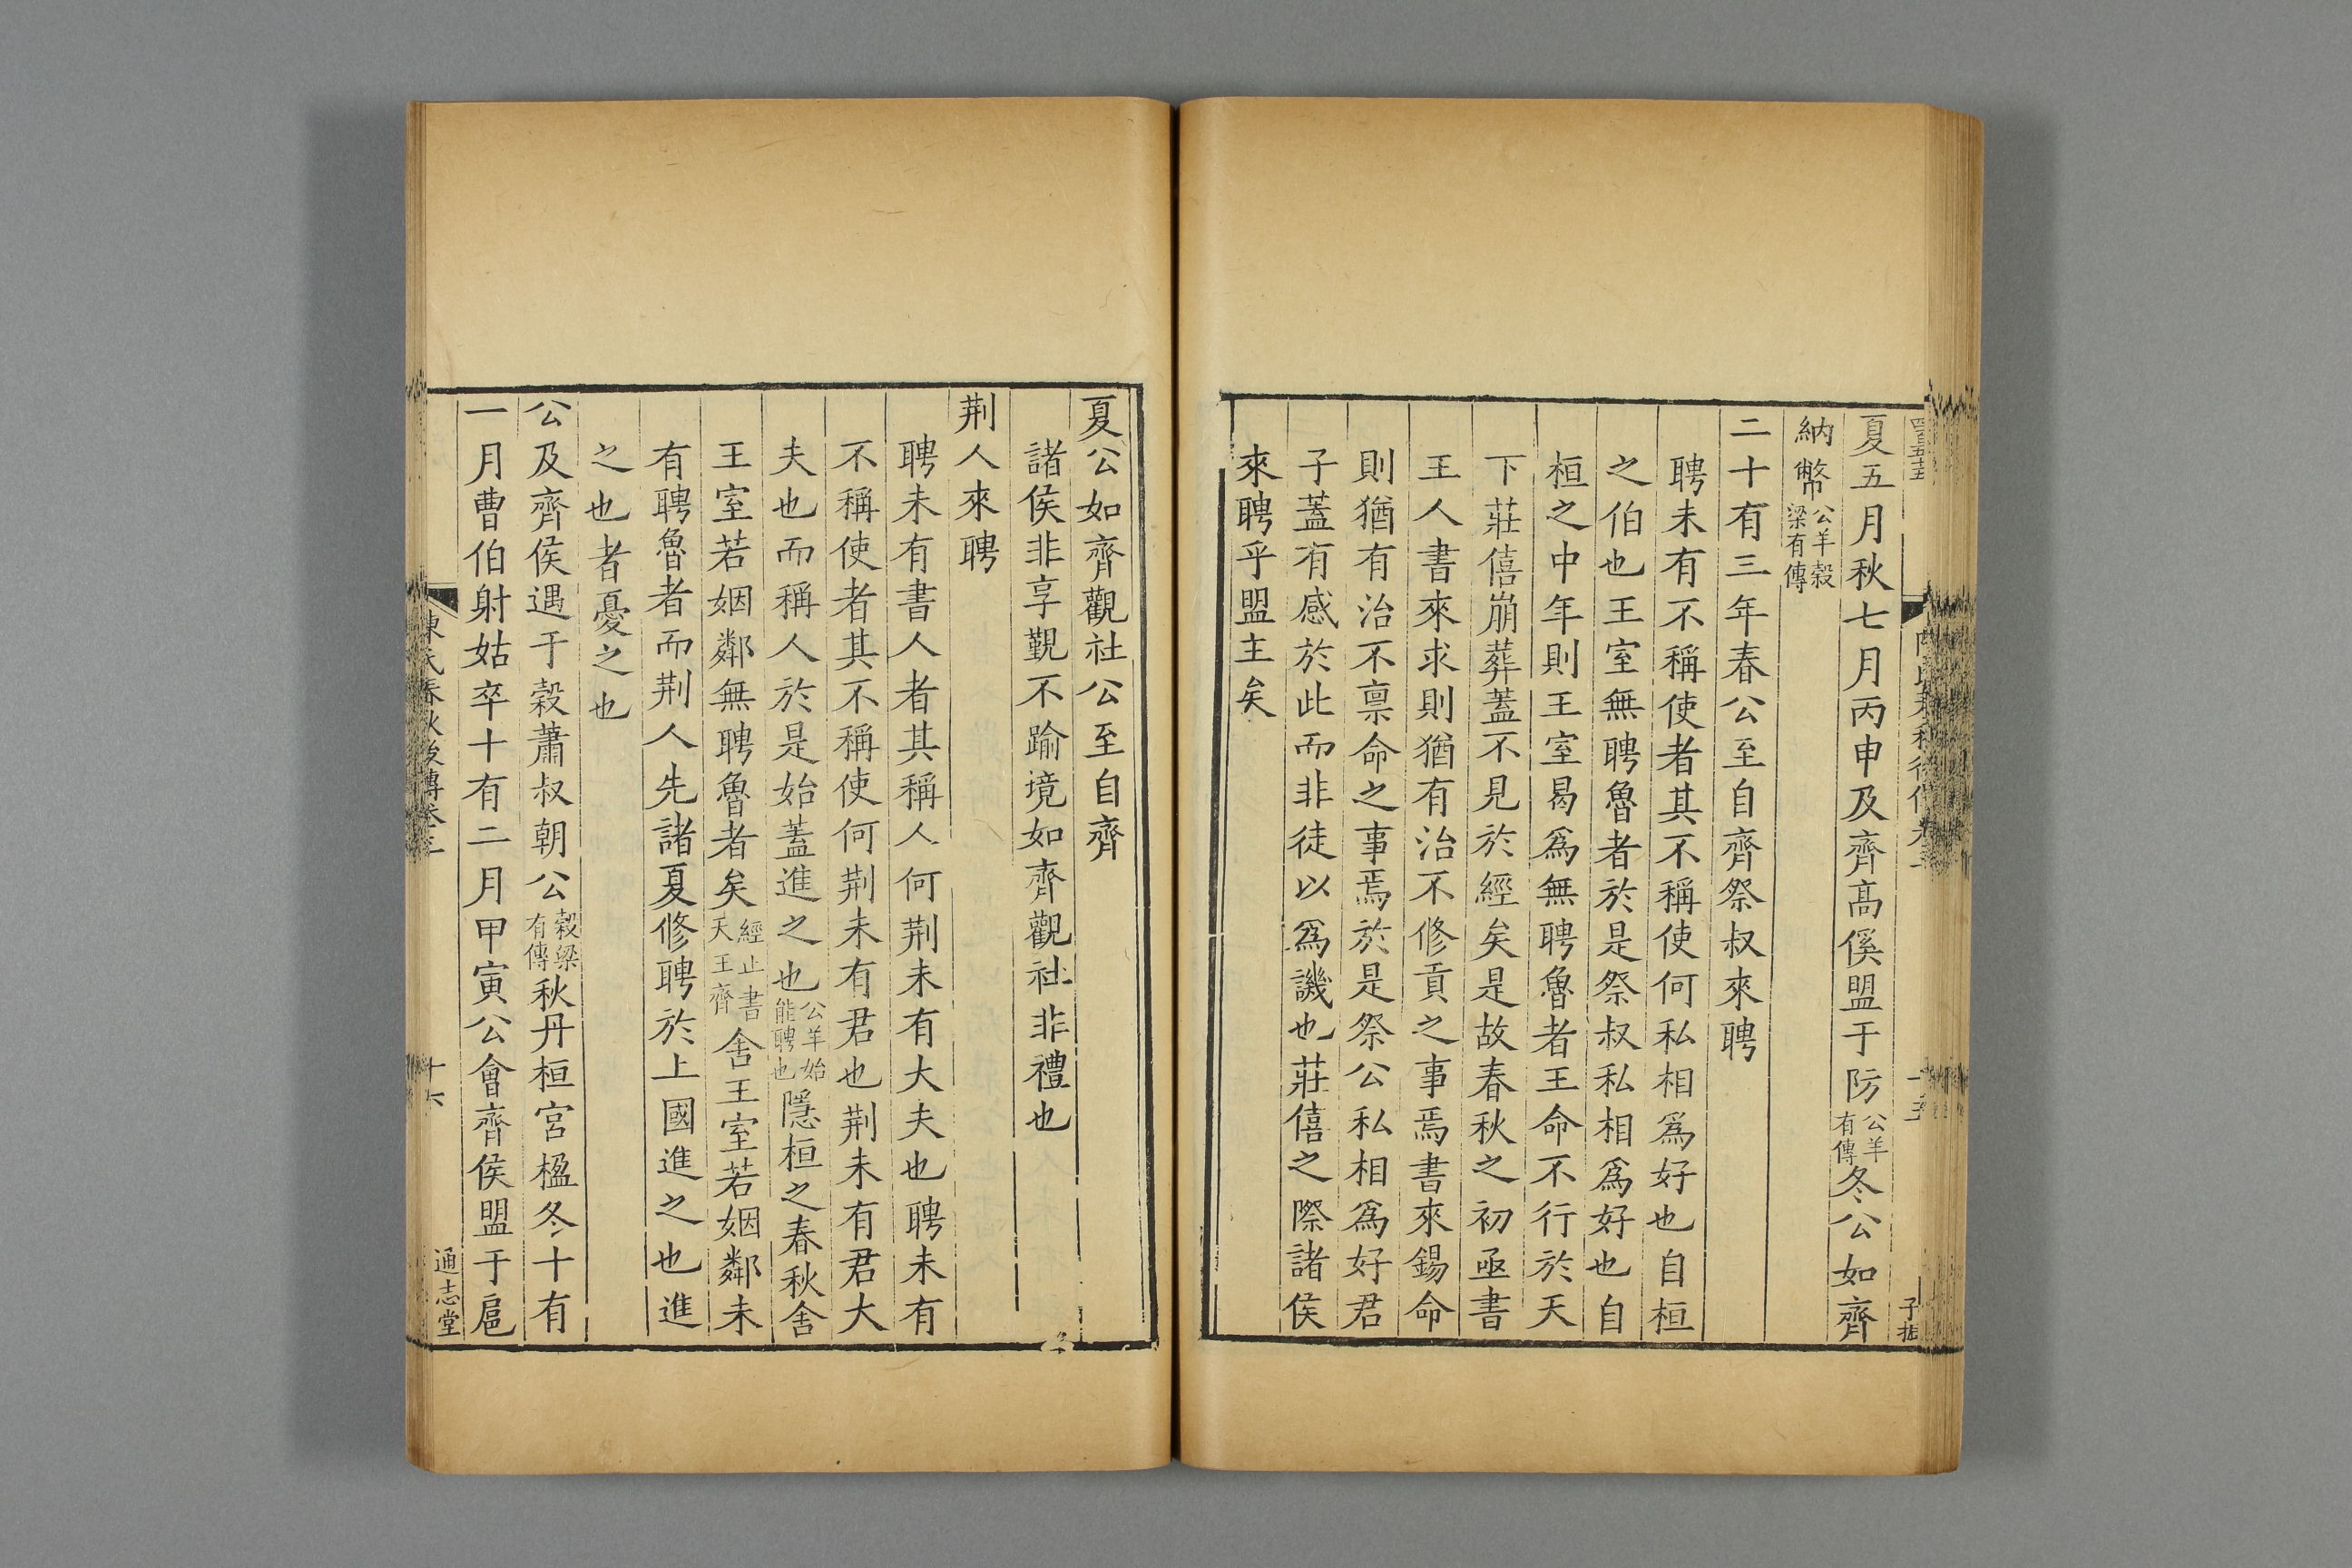 夏五月秋七月丙申及齊髙傒盟于防公羊有傳冬公如齊
納幣公羊穀梁有傳
二十有三年春公至自齊祭叔來聘
聘未有不稱使者其不稱使何私相爲好也自桓
之伯也王室無聘魯者於是祭叔私相爲好也自
桓之中年則王室曷爲無聘魯者王命不行於天
下莊僖崩葬蓋不見於經矣是故春秋之初亟書
王人書來求則猶有治不修貢之事焉書來錫命
則猶有治不禀命之事焉於是祭公私相爲好君
子蓋有感於此而非徒以爲譏也莊僖之際諸侯
來聘乎盟主矣
夏公如齊觀社公至自齊
諸侯非享覲不踰境如齊觀社非禮也
荆人來聘
聘未有書人者其稱人何荆未有大夫也聘未有
不稱使者其不稱使何荆未有君也荆未有君大
夫也而稱人於是始蓋進之也公羊始能聘也隱桓之春秋舍
王室若姻鄰無聘魯者矣經止書天王齊舍王室若姻鄰未
有聘魯者而荆人先諸夏修聘於上國進之也進
之也者憂之也
公及齊侯遇于穀蕭叔朝公穀梁有傳秋丹桓宮楹冬十有
一月曹伯射姑卒十有二月甲寅公會齊侯盟于扈
陳氏春秋後傳卷三
十六
通志堂